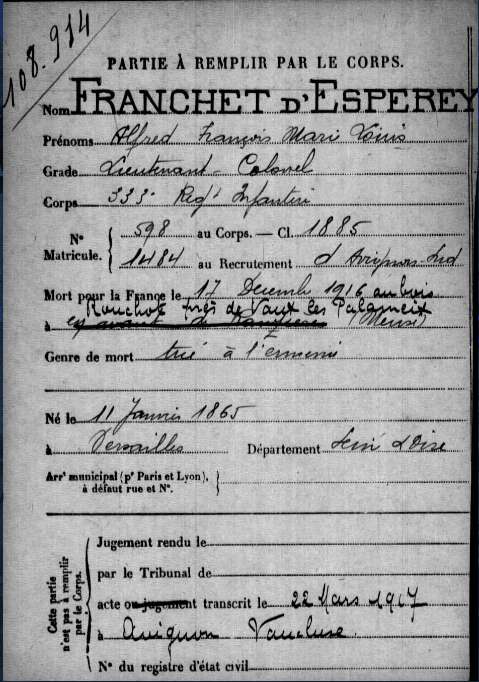 108.914
PARTIE À REMPLIR PAR LE CORPS.
Nom FRANCHET D'ESPEREY
Prénoms Alfred François Marie Louis
Grade Lieutenant-Colonel
Corps 333e Regt Infanterie
N° Matricule. { 598 au Corps. — Cl. 1885
1484 au Recrutement d'Avignon-Sud
Mort pour la France le 17 Decembre 1916 au bois
Rouchot près de Vaux les Palameix
à en avant de (Meuse)
Genre de mort tué à l'Ennemi
Né le 11 Janvier 1865
à Versailles Département Seine & Oise
Arrt municipal (pr Paris et Lyon), à défaut rue et N°. {
Cette partie n'est pas à remplir par le Corps.
Jugement rendu le
par le Tribunal de
acte ou jugement transcrit le 22 Mars 1917
à Avignon Vaucluse.
N° du registre d'état civil